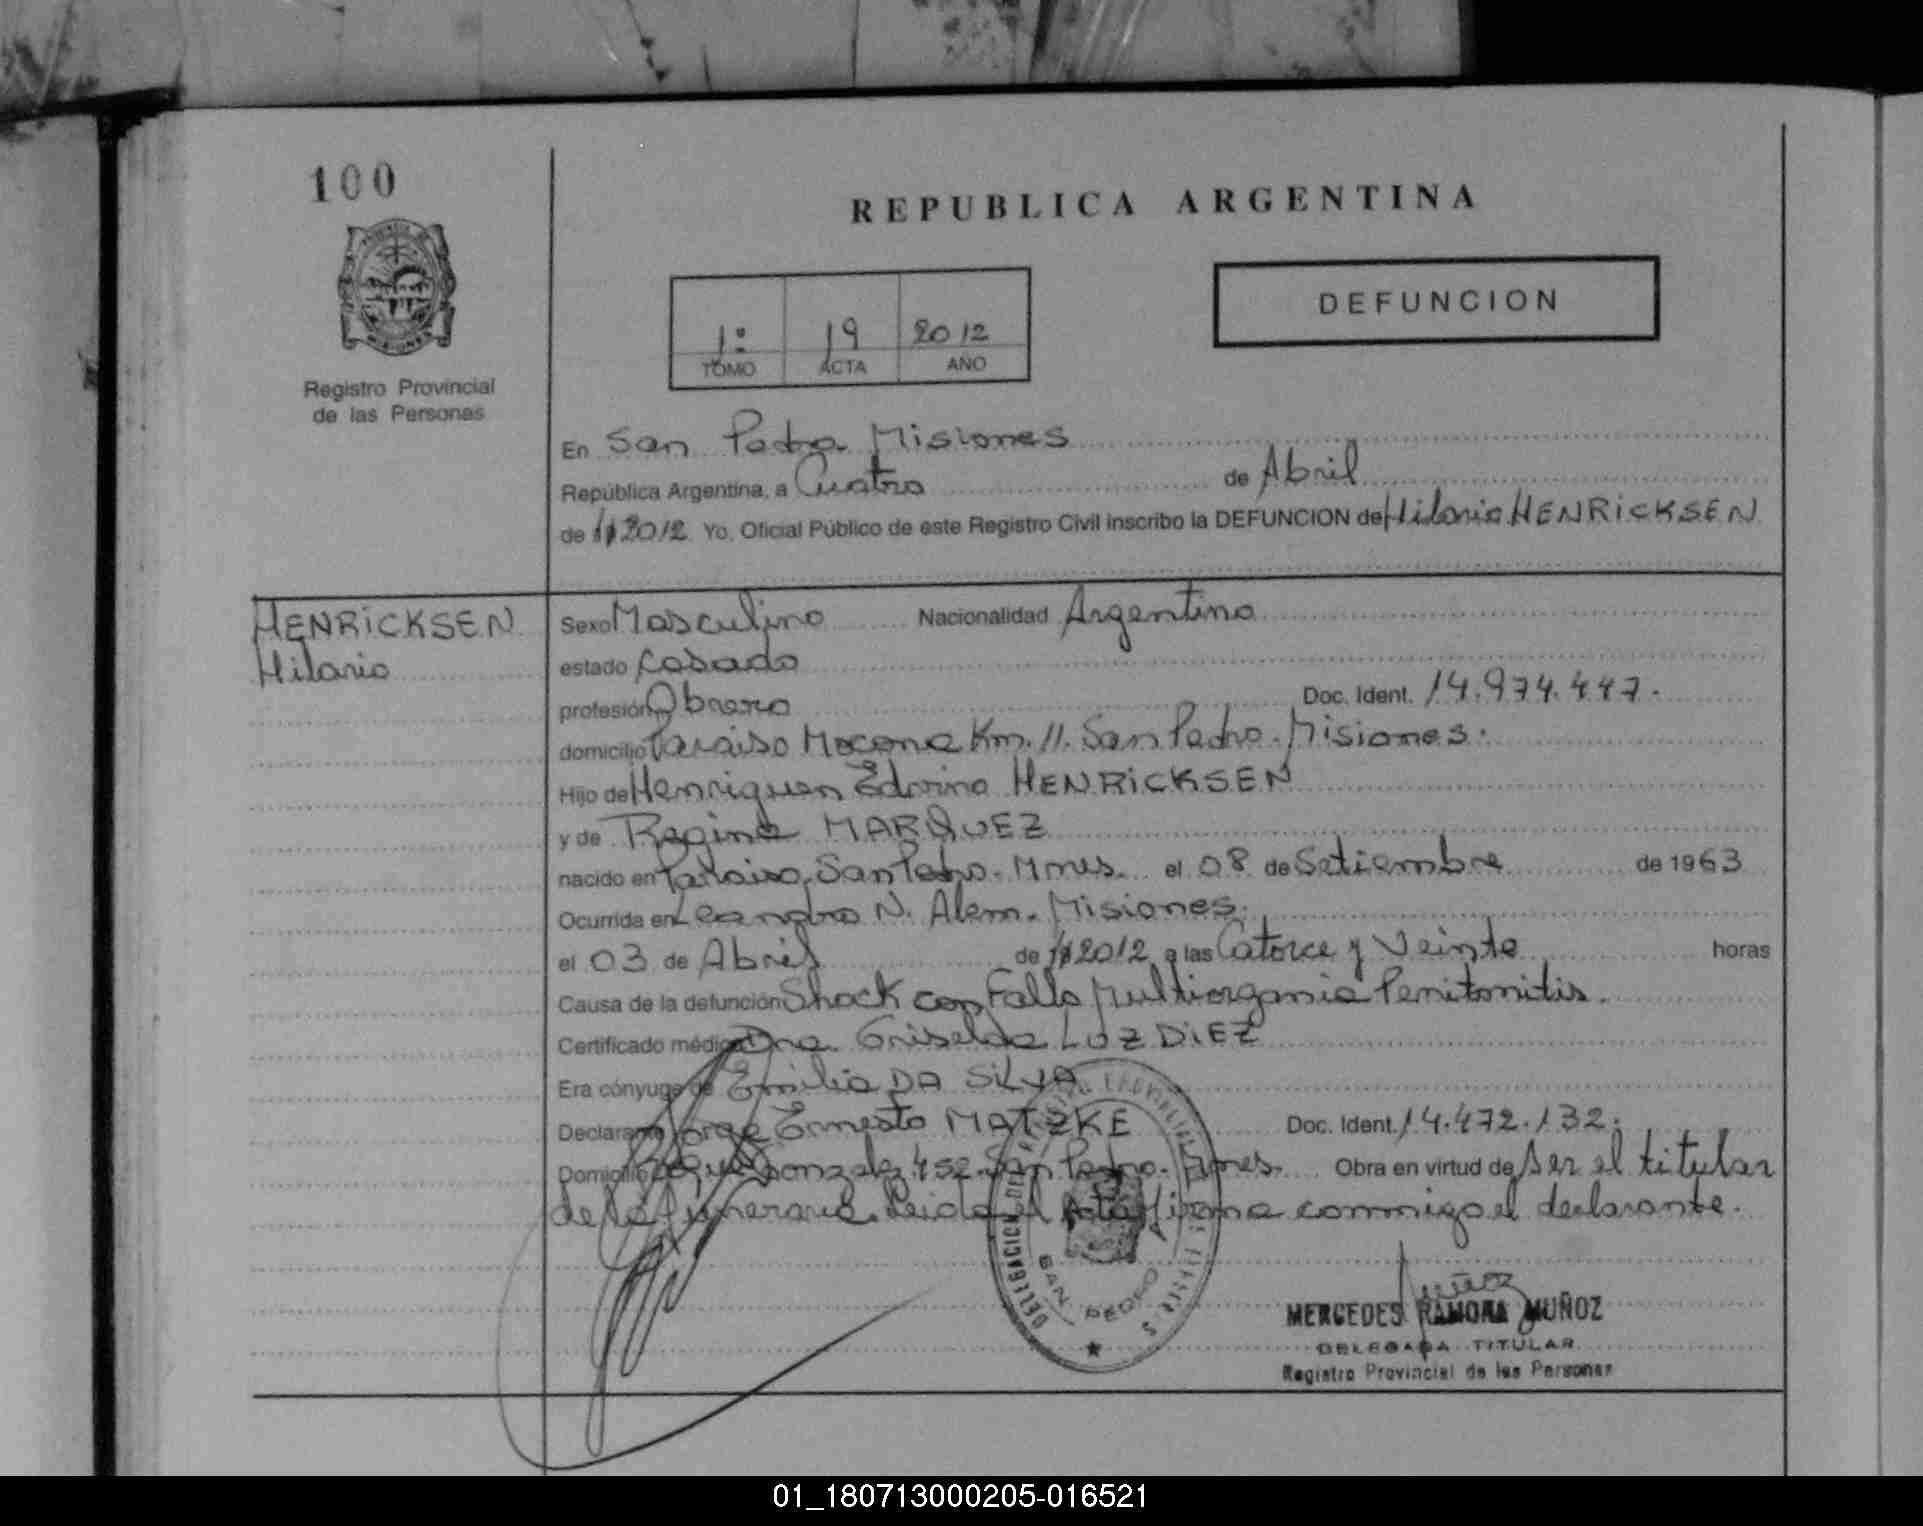 100
REPUBLICA ARGENTINA
DEFUNCION
1º 19 2012
TOMO ACTA AÑO
Registro Provincial
de las Personas
En San Pedro Misiones
República Argentina, a Cuatro de Abril
de 2012 Yo, Oficial Público de este Registro Civil inscribo la DEFUNCION de Hilario HENRICKSEN
HENRICKSEN
Hilario
Sexo Masculino Nacionalidad Argentina
estado Casado
profesión Obrero Doc. Ident. 14.974.447.
domicilio Paraiso Mocona Km. 11. San Pedro. Misiones.
Hijo de Henriquen Edvino HENRICKSEN
y de Regina MARQUEZ
nacido en Paraiso, San Pedro. Mnes. el 08 de Setiembre de 1963
Ocurrida en Leandro N. Alem. Misiones.
el 03 de Abril de 2012 a las Catorce y Veinte horas
Causa de la defunción Shock con Falla Multiorganica Peritonitis.
Certificado médico Dra. Griselda LUZ DIEZ
Era cónyuge de Emilia DA SILVA
Declarante Jorge Ernesto MATZKE Doc. Ident. 14.472.132.
Domicilio Roque Gonzalez 452. San Pedro. Mnes. Obra en virtud de ser el titular
de la funeraria. Leida el Acta firma conmigo el declarante.
DELEGACION
SAN PEDRO
MERCEDES RAMONA MUÑOZ
DELEGADA TITULAR
Registro Provincial de las Personas
01_180713000205-016521